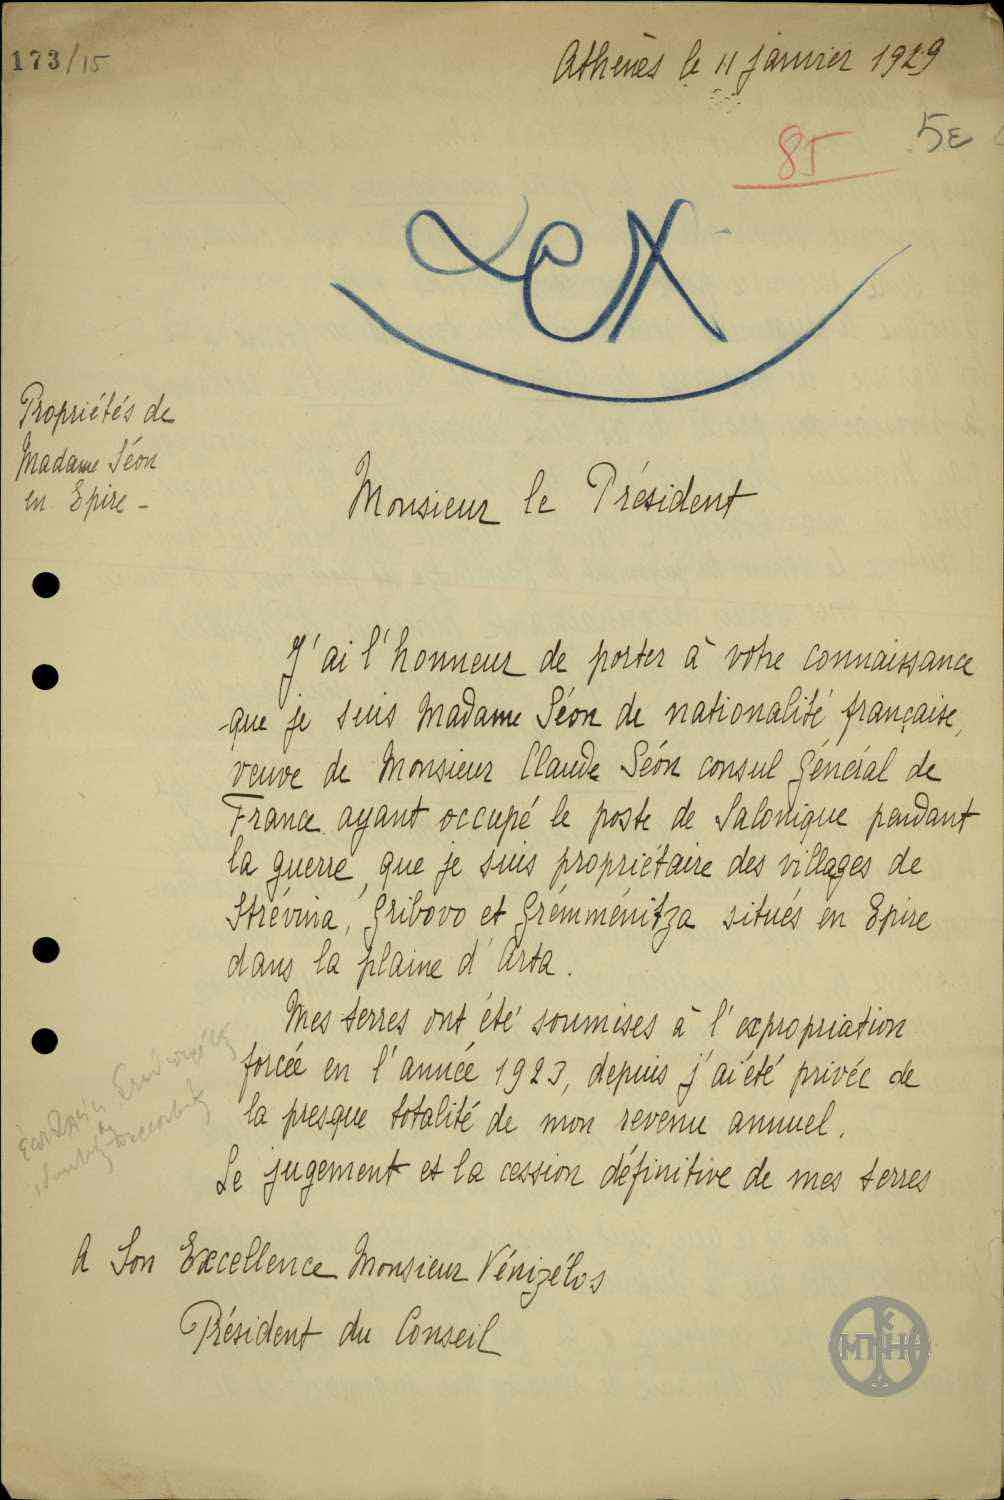 173/15
Athènes le 11 janvier 1929
85
5ε
Propriétés de
Madame Séon
en Epire -
Monsieur le Président
J'ai l'honneur de porter à votre connaissance
que je suis Madame Séon de nationalité française,
veuve de Monsieur Claude Séon consul Général de
France ayant occupé le poste de Salonique pendant
la guerre, que je suis propriétaire des villages de
Strévina, Gribovo et Grémménitza situés en Epire
dans la plaine d'Arta.
Mes terres ont été soumises à l'expropriation
forcée en l'année 1923, depuis j'ai été privée de
la presque totalité de mon revenu annuel.
Le jugement et la cession définitive de mes terres
A Son Excellence Monsieur Vénizélos
Président du Conseil